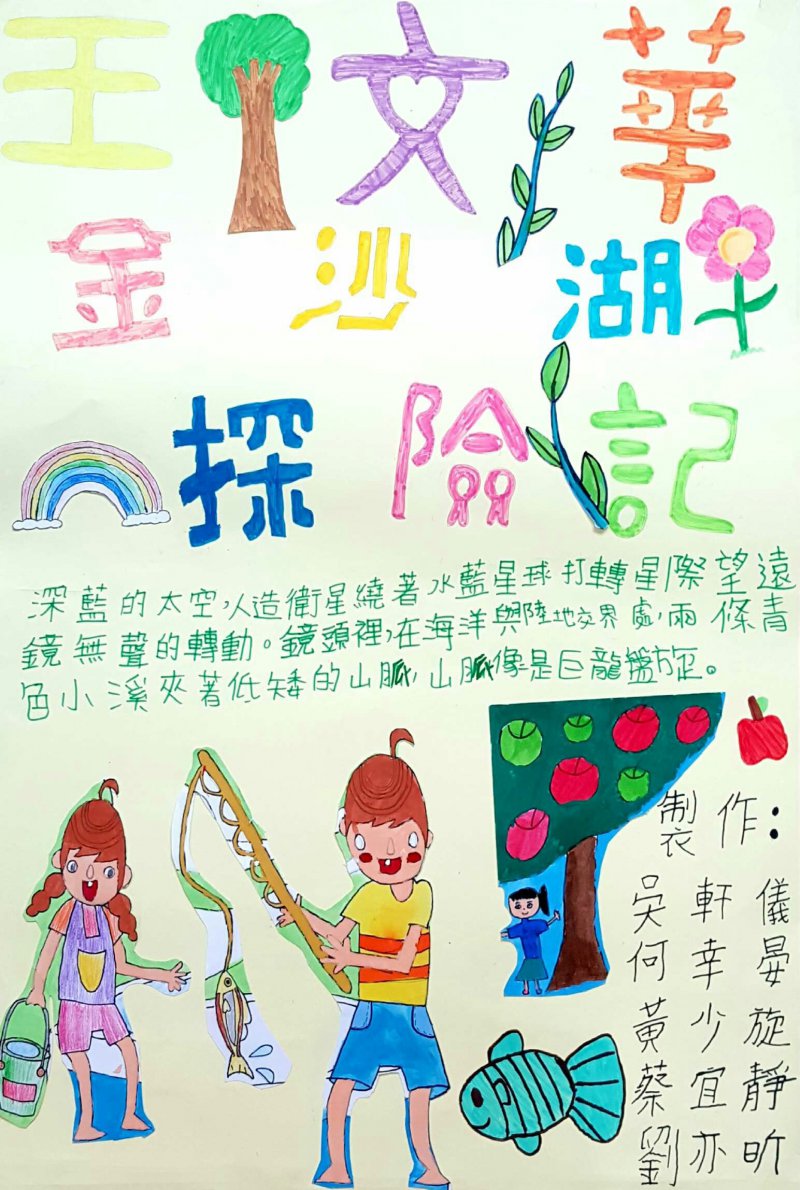 王文華
金沙湖
探險記
深藍的太空,人造衛星繞著水藍星球打轉星際望遠
鏡無聲的轉動。鏡頭裡,在海洋與陸地交界處,兩條青
色小溪夾著低矮的山脈,山脈像是巨龍盤旋。
製作:
吳軒儀
何幸晏
黃少旋
蔡宜靜
劉亦昕